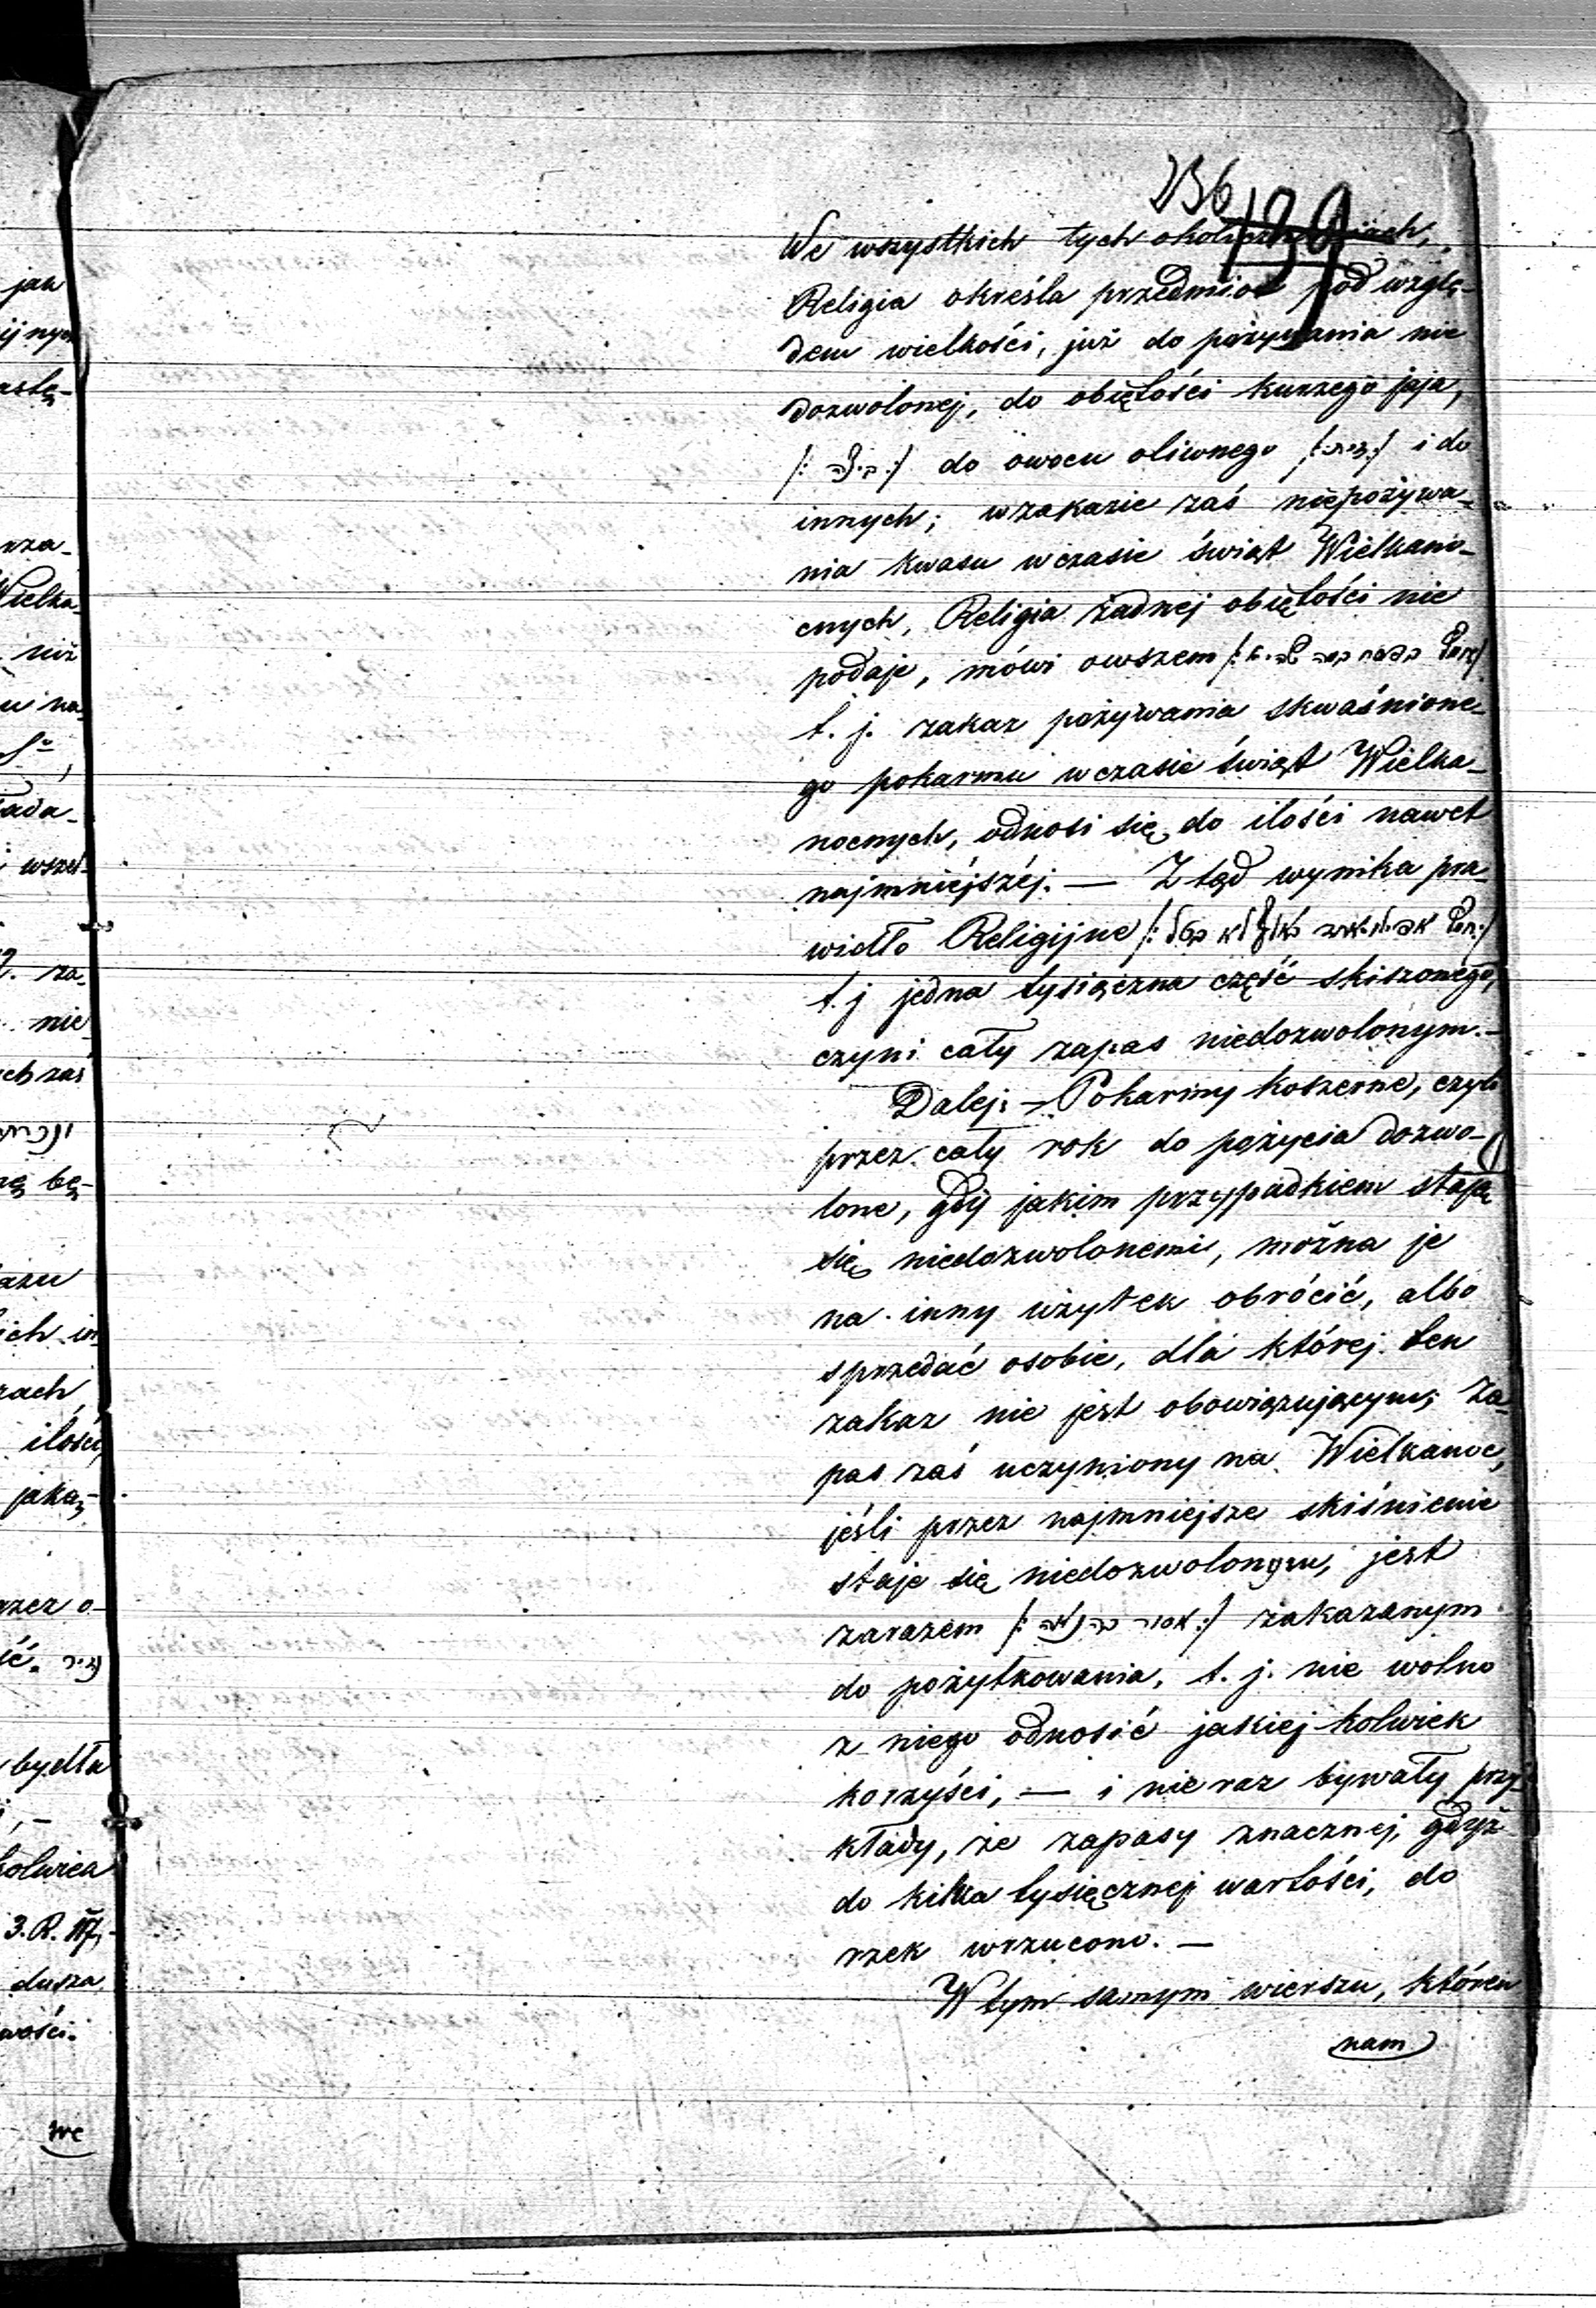 236
139
We wszystkich tych okolicznościach,
Religia określa przedmiot pod wzglę-
dem wielkości, już do pożywania nie
dozwolonej, do obiętości kurzego jaja,
/: ביצה :/ do owocu oliwnego /: זית :/ i do
innych; w zakazie zaś niepożywa-
nia kwasu w czasie świąt Wielkano-
cnych, Religia żadnej obiętości nie
podaje, mówi owszem
t. j. zakaz pożywania skwaśnione-
go pokarmu w czasie świąt Wielka-
nocnych, odnosi się do ilości nawet
najmniéjszéj. — Z tąd wynika pra-
widło Religijne
t. j jedna tysiączna część skiszonego,
czyni cały zapas niedozwolonym. —
Dalej: — Pokarmy koszerne, czyli
przez cały rok do pożycia dozwo-
lone, gdy jakim przypadkiem stają
się niedozwolonemi, można je
na inny użytek obrócić, albo
sprzedać osobie, dla której ten
zakaz nie jest obowiązującym; za-
pas zaś uczyniony na Wielkanoc,
jeśli przez najmniejsze skiśnienie
staje się niedozwolonym, jest
zarazem /: אסור בהנאה :/ zakazanym
do pożytkowania, t. j. nie wolno
z niego odnosić jakiej kolwiek
korzyści, — i nie raz bywały przy-
kłady, że zapasy znacznej, gdyż
do kilka tysięcznej wartości, do
rzek wrzucono. —
W tym samym wierszu, któren
nam
jak
rza-
Wielka-
niż
u na-
wszel-
za-
nie
ch zaś
ich in
ilości
jaką-
przez o-
bydła
kolwiek
3. R.
dusza
wości.
we